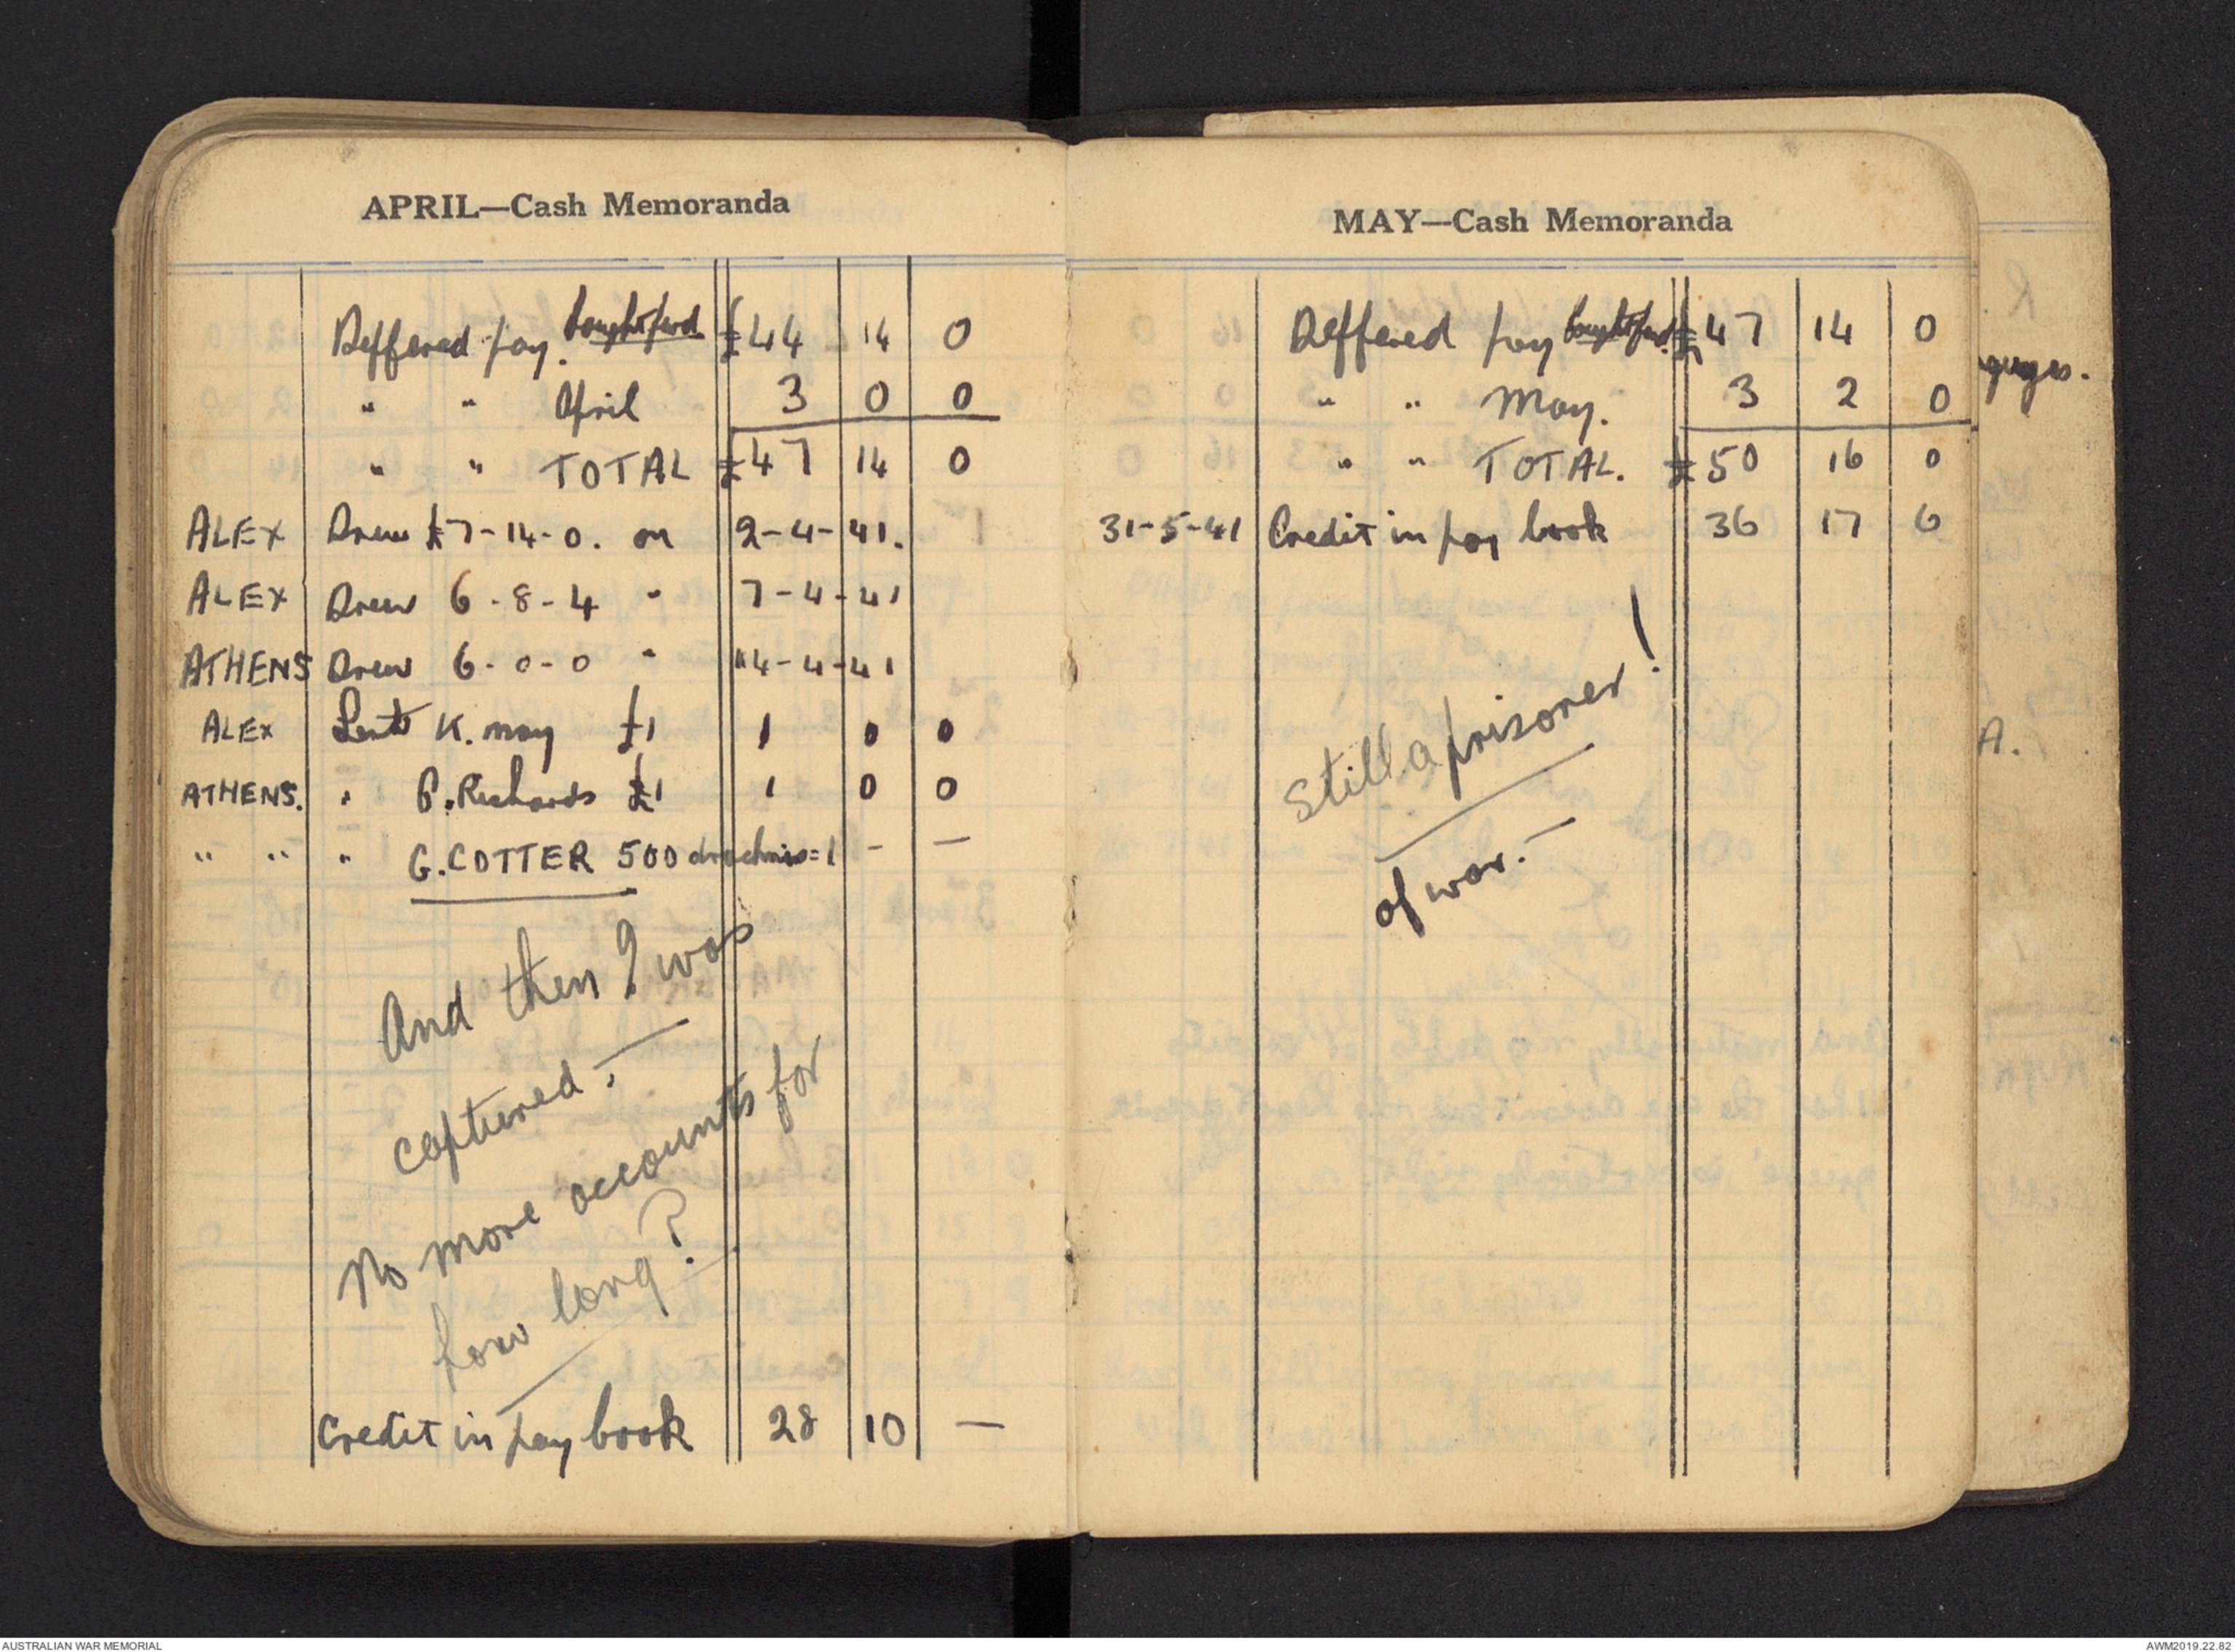 APRIL—Cash Memoranda
Deffered pay. bought fwd. £44 14 0
" " April 3 0 0
" " TOTAL £47 14 0
ALEX Drew £7-14-0. on 2-4-41.
ALEX Drew 6-8-4 " 7-4-41
ATHENS Drew 6-0-0 " 14-4-41
ALEX Lent K. May £1 1 0 0
ATHENS. " P. Richards £1 1 0 0
" " " G. COTTER 500 drachmis=1 - —
And then I was
captured.—
No more accounts for
how long?
Credit in pay book 28 10 —
MAY—Cash Memoranda
Deffered pay bought fwd. £47 14 0
" " May. 3 2 0
" " TOTAL. £50 16 0
31-5-41 Credit in pay book 36 17 6
Still a prisoner!
of war.—
R
guages.
A.
AUSTRALIAN WAR MEMORIAL
AWM2019.22.82